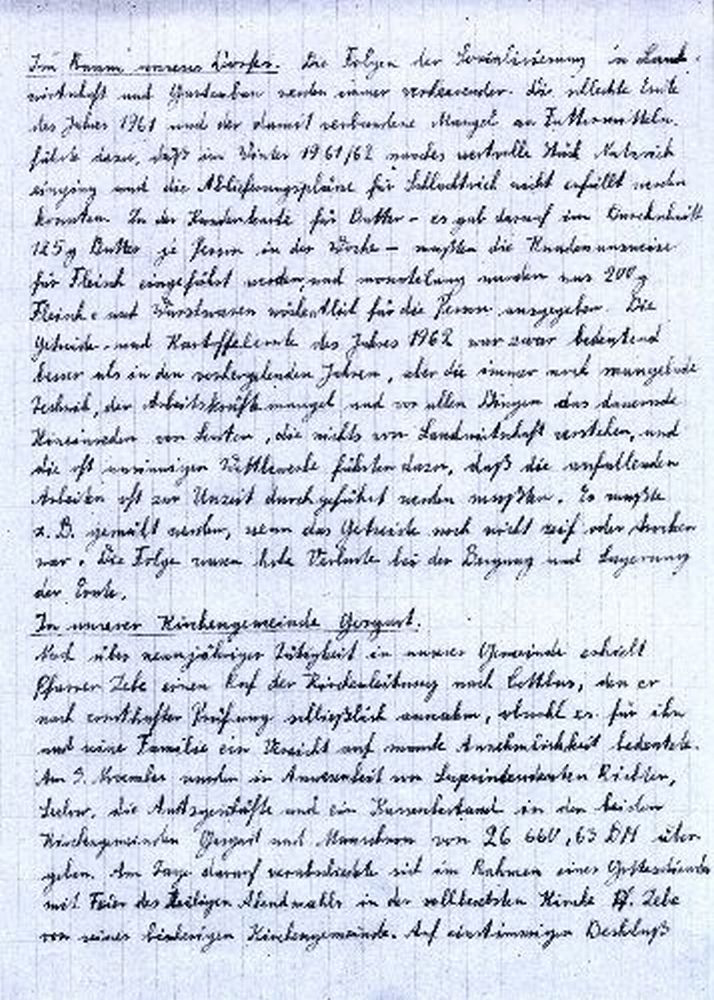 Im Raum unseres Dorfes. Die Folgen der Sozialisierung in Land-
wirtschaft und Gartenbau werden immer verheerender. Die schlechte Ernte
des Jahres 1961 und der damit verbundene Mangel an Futtermitteln
führte dazu, daß im Winter 1961/62 manches wertvolle Stück Nutzvieh
einging und die Ablieferungspläne für Schlachtvieh nicht erfüllt werden
konnten. Zu der Kundenkarte für Butter - es gab darauf im Durchschnitt
125 g Butter je Person in der Woche - mußten die Kundenausweise
für Fleisch eingeführt werden, und monatelang wurden nur 200 g
Fleisch- und Wurstwaren wöchentlich für die Person ausgegeben. Die
Getreide- und Kartoffelernte des Jahres 1962 war zwar bedeutend
besser als in den vorhergehenden Jahren, aber die immer noch mangelnde
Technik, der Arbeitskräftemangel und vor allen Dingen das dauernde
Hineinreden von Leuten, die nichts von Landwirtschaft verstehen, und
die oft unsinnigen Wettbewerbe führten dazu, daß die anfallenden
Arbeiten oft zur Unzeit durchgeführt werden mußten. Es mußte
z. B. gemäht werden, wenn das Getreide noch nicht reif oder trocken
war. Die Folge waren hohe Verluste bei der Bergung und Lagerung
der Ernte.
In unserer Kirchengemeinde Gorgast.
Nach über neunjähriger Tätigkeit in unserer Gemeinde erhielt
Pfarrer Zebe einen Ruf der Kirchenleitung nach Cottbus, den er
nach ernsthafter Prüfung schließlich annahm, obwohl es für ihn
und seine Familie ein Verzicht auf manche Annehmlichkeit bedeutete.
Am 9. November wurden in Anwesenheit von Superintendenten Richter,
Seelow, die Amtsgeschäfte und ein Kassenbestand in den beiden
Kirchengemeinden Gorgast und Manschnow von 26 660,63 DM über-
geben. Am Tage darauf verabschiedete sich im Rahmen eines Gottesdienstes
mit Feier des Heiligen Abendmahls in der vollbesetzten Kirche Pf. Zebe
von seiner bisherigen Kirchengemeinde. Auf einstimmigen Beschluß